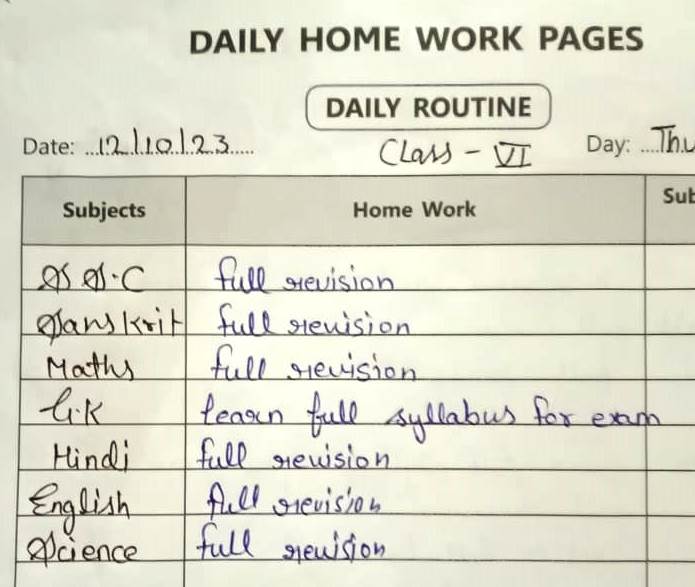 DAILY HOME WORK PAGES
DAILY ROUTINE
Date: ...12/10/23..... Class - VI Day: ....Thu
Subjects Home Work Sub
S S.C full revision
Sanskrit full revision
Maths full revision
G.K learn full syllabus for exam
Hindi full revision
English full revision
Science full revision